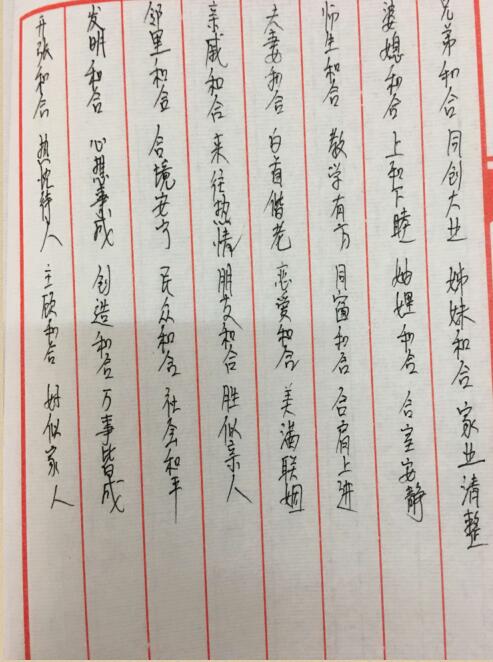 兄弟和合 同创大业 姊妹和合 家业清整
婆媳和合 上和下睦 妯娌和合 合室安静
师生和合 教学有方 同窗和合 合肩上进
夫妻和合 白首偕老 恋爱和合 美满联姻
亲戚和合 来往热情 朋友和合 胜似亲人
邻里和合 合境安宁 民众和合 社会和平
发明和合 心想事成 创造和合 万事皆成
开张和合 热忱待人 主顾和合 好似家人